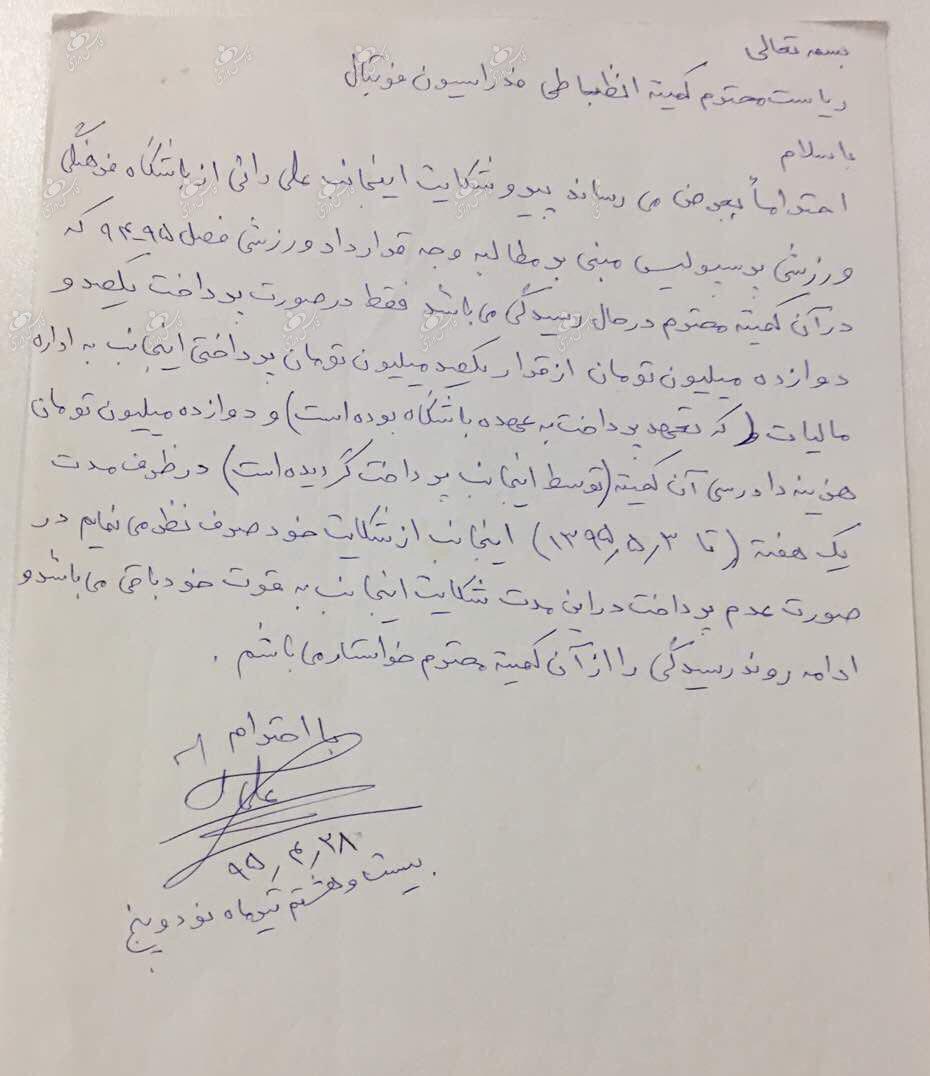 بسمه تعالی
ریاست محترم کمیته انظباطی فدراسیون فوتبال
با سلام
احتراماً بعرض می رساند پیرو شکایت اینجانب علی دائی از باشگاه فرهنگی
ورزشی پرسپولیس مبنی بر مطالبه وجه قرارداد ورزشی فصل ۹۵-۹۴ که
در آن کمیته محترم در حال رسیدگی می باشد فقط در صورت پرداخت یکصد و
دوازده میلیون تومان از قرار یکصد میلیون تومان پرداختی اینجانب به اداره
مالیات (که تعهد پرداخت به عهده باشگاه بوده است) و دوازده میلیون تومان
هزینه دادرسی آن کمیته (توسط اینجانب پرداخت گردیده است) در ظرف مدت
یک هفته (تا ۱۳۹۵٫۵٫۳) اینجانب از شکایت خود صرف نظر می نمایم در
صورت عدم پرداخت در این مدت شکایت اینجانب به قوت خود باقی می باشد و
ادامه روند رسیدگی را از آن کمیته محترم خواستار می باشم .
با احترام
علی
۹۵٫۴٫۲۸
بیست و هشتم تیرماه نود و پنج